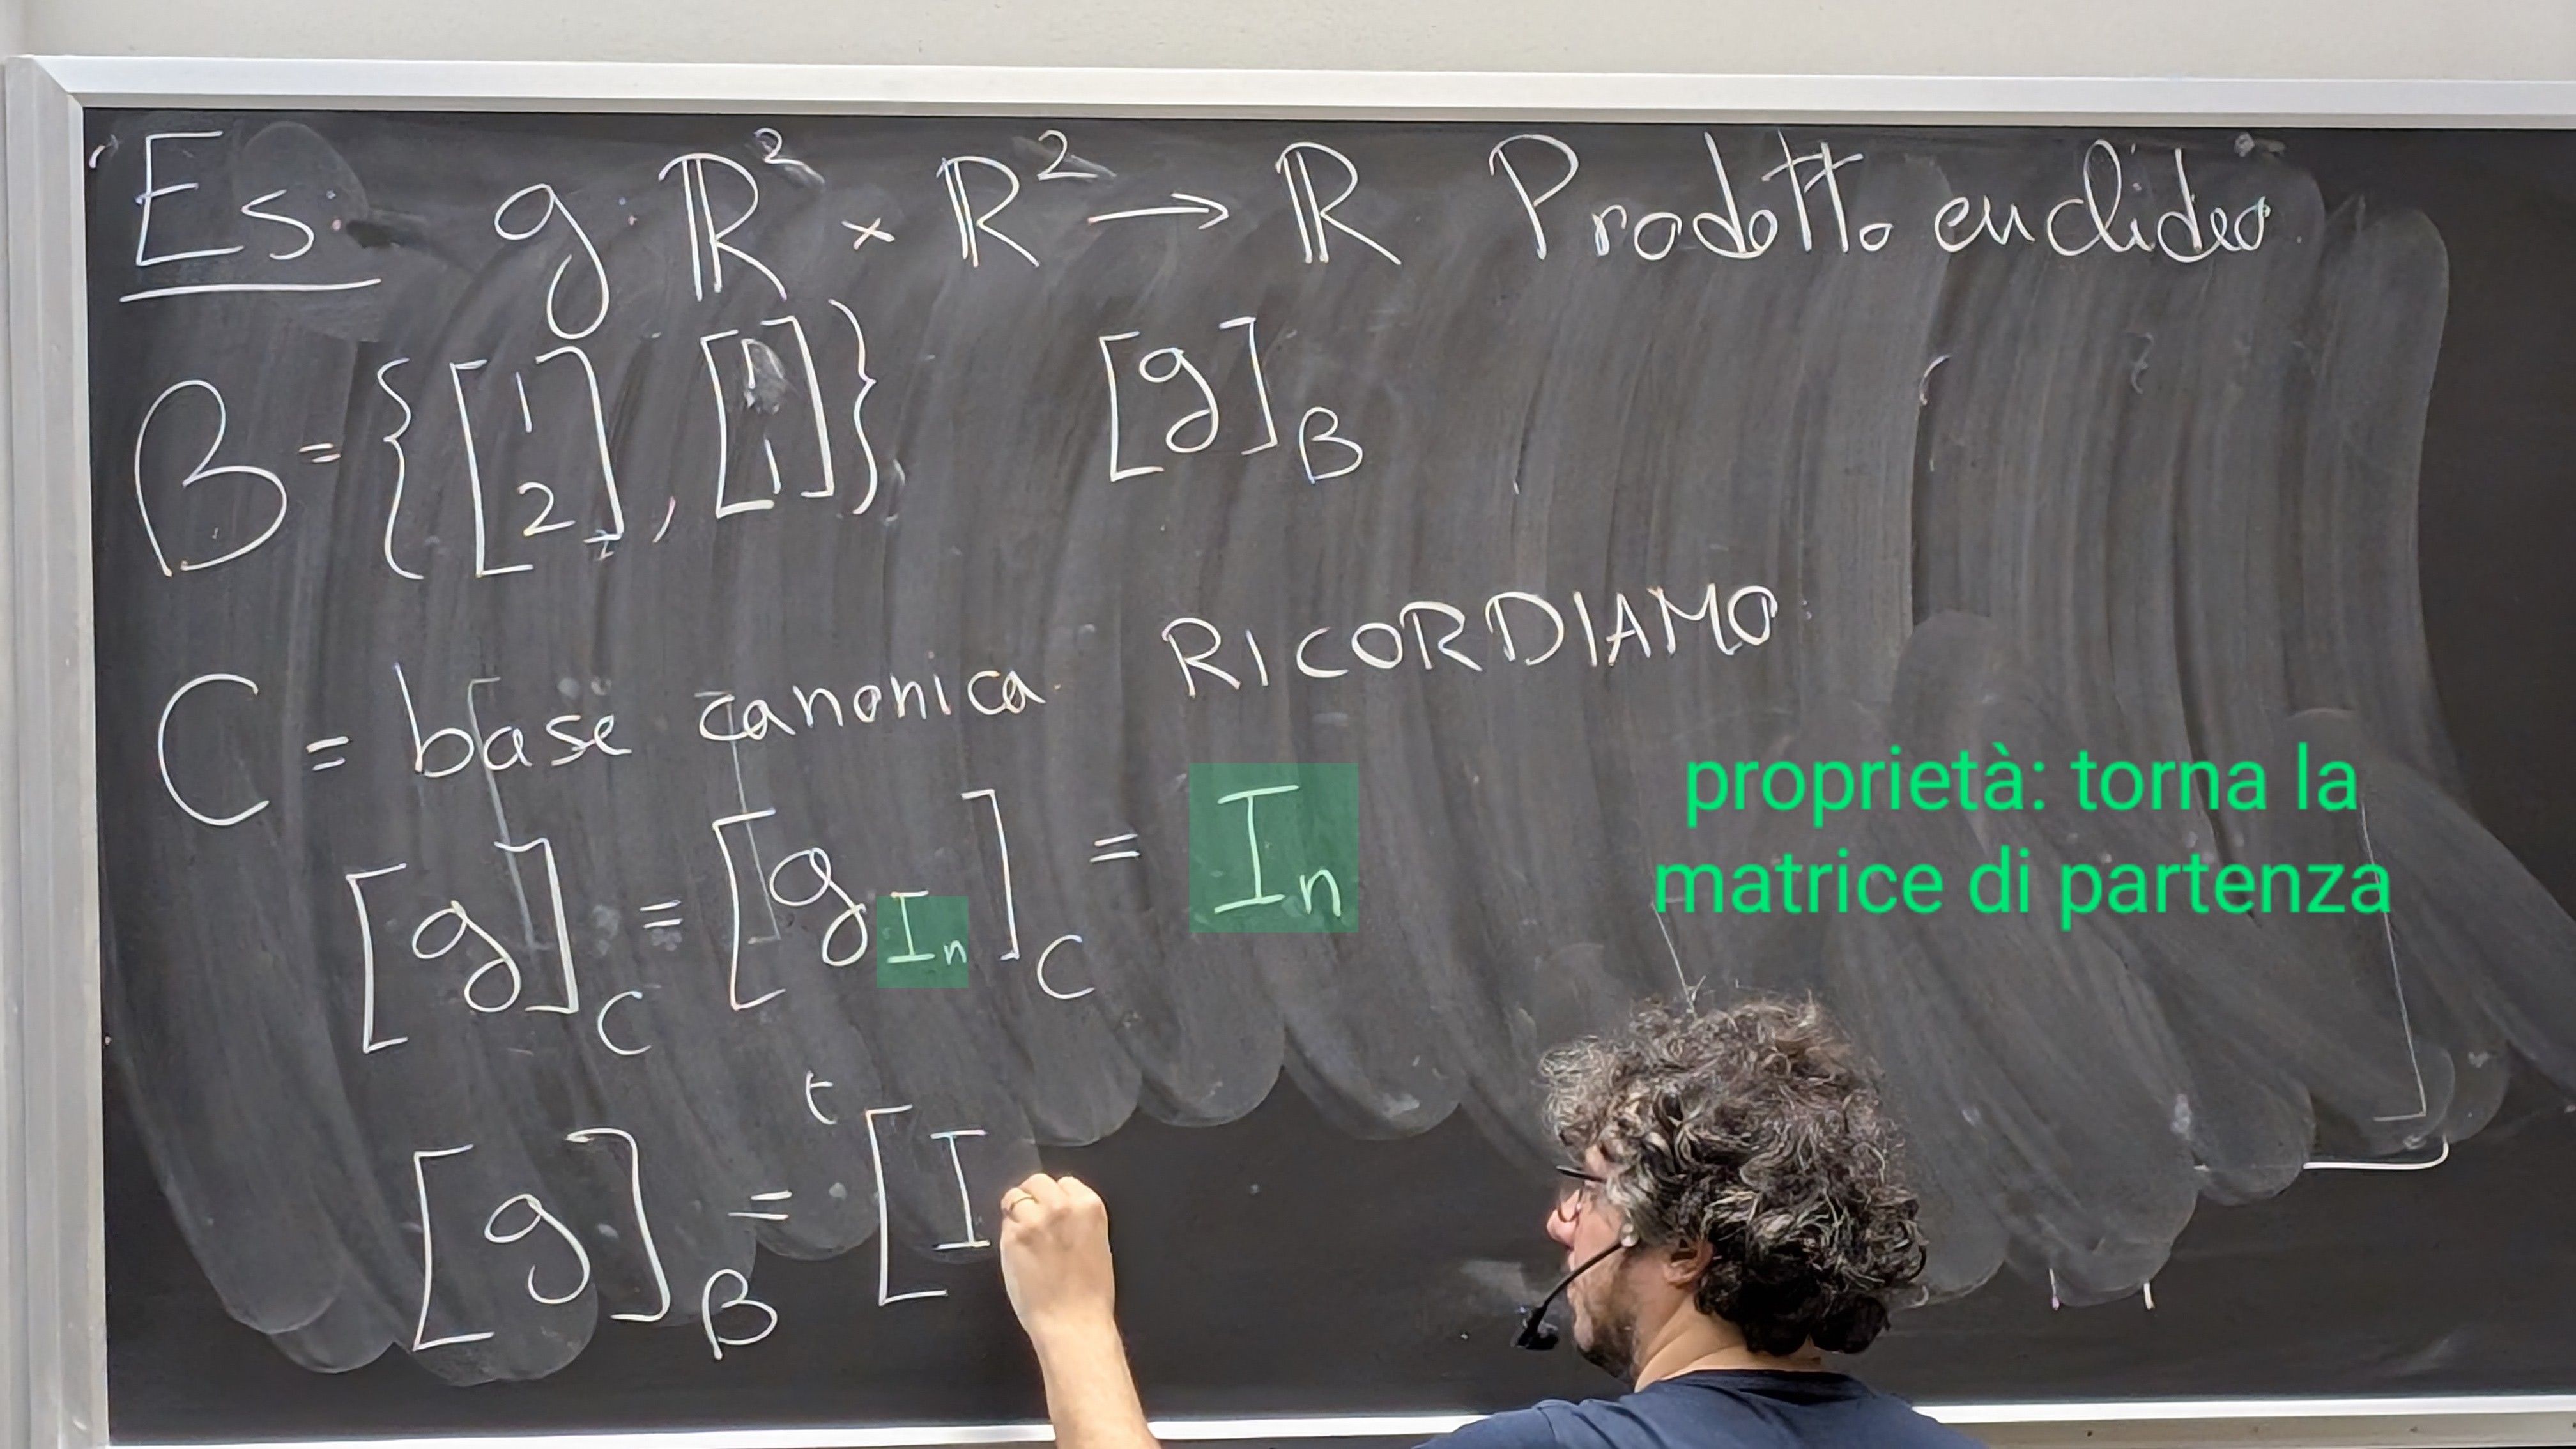 Es: g: ℝ² × ℝ² → ℝ Prodotto euclideo
B = { [1 2], [ 1] } [g]_B
C = base canonica RICORDIAMO
[g]_C = [g_{I_n}]_C = I_n
proprietà: torna la
matrice di partenza
[g]_B = ᵗ[I